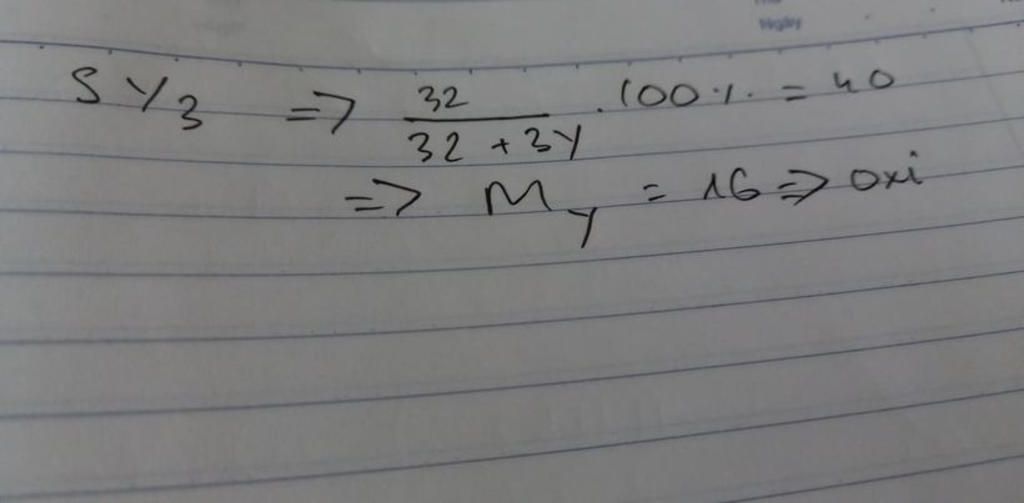 Ngày
SY₃ => 32/(32 + 3Y) . 100% = 40
=> M_Y = 16 => oxi